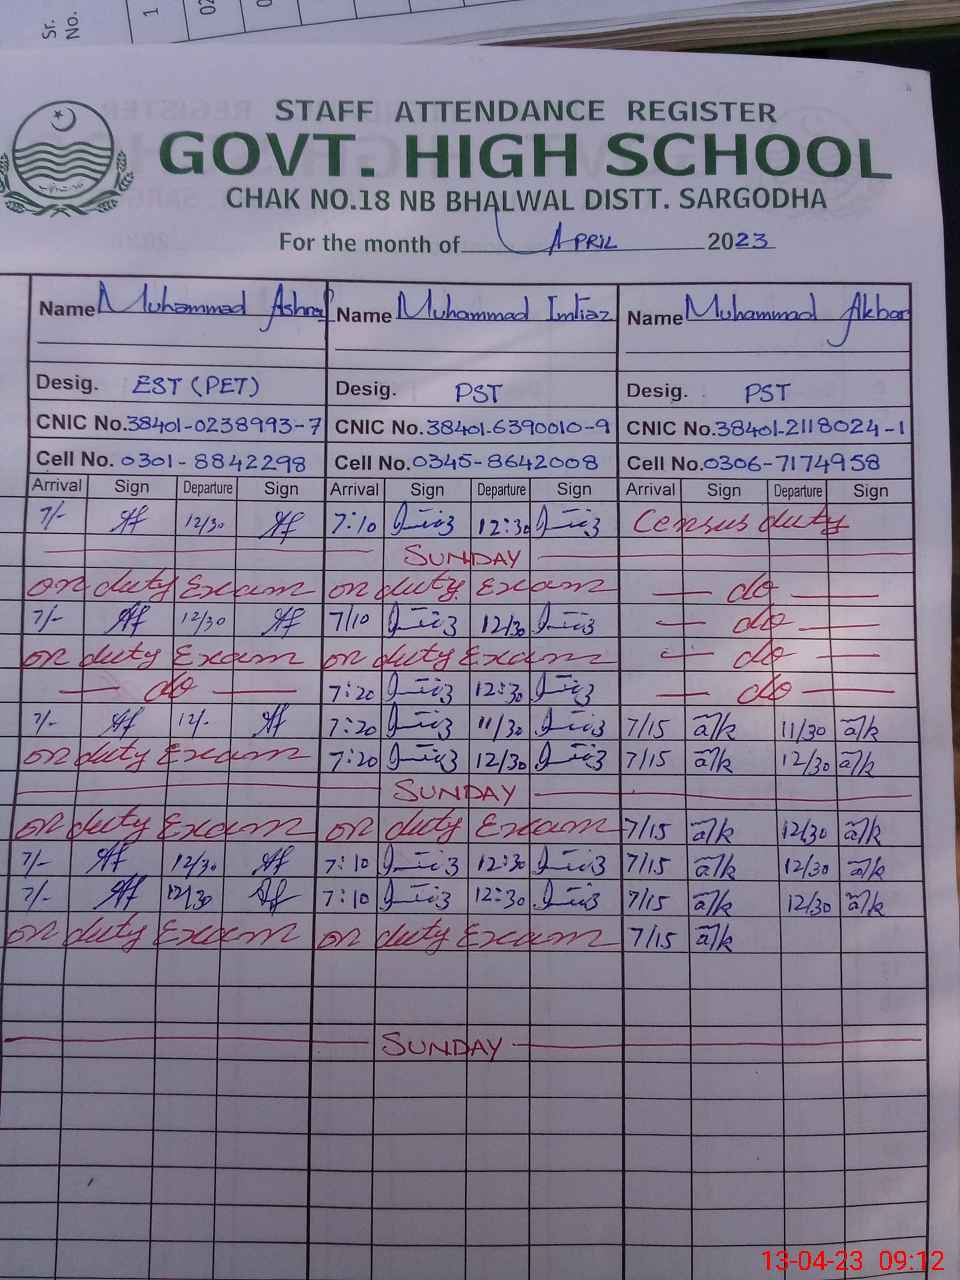 Sr.
No.
1
02
STAFF ATTENDANCE REGISTER
GOVT. HIGH SCHOOL
CHAK NO.18 NB BHALWAL DISTT. SARGODHA
For the month of APRIL 2023
Name Muhammad Ashraf Name Muhammad Imtiaz Name Muhammad Akbar
Desig. EST (PET) Desig. PST Desig. PST
CNIC No.38401-0238993-7 CNIC No.38401-6390010-9 CNIC No.38401-2118024-1
Cell No. 0301-8842298 Cell No.0345-8642008 Cell No.0306-7174958
Arrival Sign Departure Sign Arrival Sign Departure Sign Arrival Sign Departure Sign
7/- 12/30 7:10 12:30 Census duty
SUNDAY
on duty Exam on duty Exam — do —
7/- 12/30 7/10 12/30 — do —
on duty Exam on duty Exam — do —
— do — 7:20 12:30 — do —
7/- 12/- 7:20 11/30 7/15 a/k 11/30 a/k
on duty Exam 7:20 12/30 7/15 a/k 12/30 a/k
SUNDAY
on duty Exam on duty Exam 7/15 a/k 12/30 a/k
7/- 12/30 7:10 12:30 7/15 a/k 12/30 a/k
7/- 12/30 7:10 12:30 7/15 a/k 12/30 a/k
on duty Exam on duty Exam 7/15 a/k
SUNDAY
13-04-23 09:12